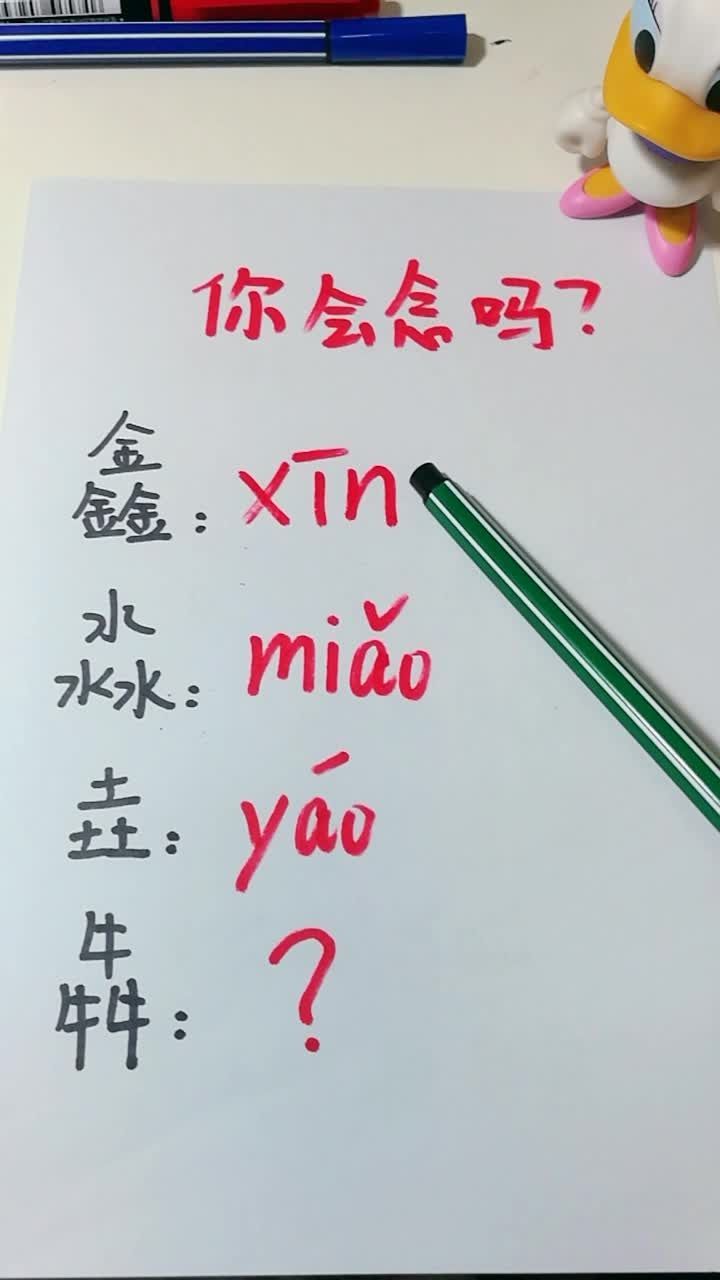 你会念吗?
鑫:xīn
淼:miǎo
垚:yáo
犇:?